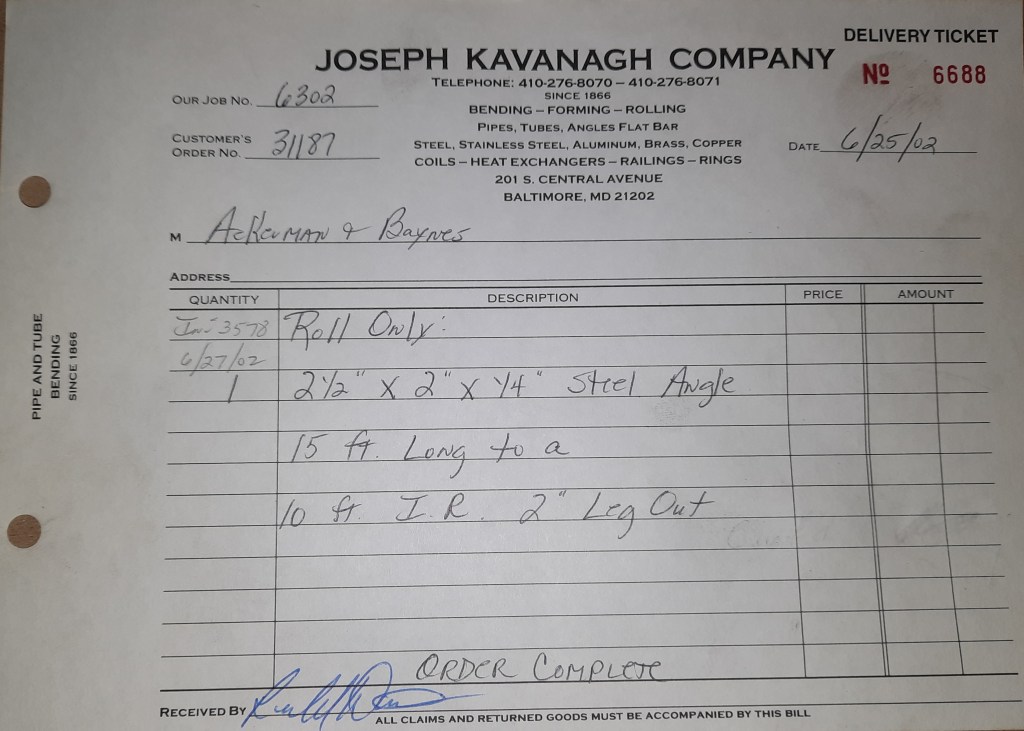 DELIVERY TICKET
JOSEPH KAVANAGH COMPANY
Nº 6688
TELEPHONE: 410-276-8070 – 410-276-8071
SINCE 1866
OUR JOB NO. 6302
BENDING – FORMING – ROLLING
PIPES, TUBES, ANGLES FLAT BAR
CUSTOMER'S
ORDER NO. 31187
STEEL, STAINLESS STEEL, ALUMINUM, BRASS, COPPER
DATE 6/25/02
COILS – HEAT EXCHANGERS – RAILINGS – RINGS
201 S. CENTRAL AVENUE
BALTIMORE, MD 21202
M Ackerman & Baynes
ADDRESS
QUANTITY DESCRIPTION PRICE AMOUNT
Inv 3578 Roll Only:
6/27/02
1 2 1/2" X 2" X 1/4" Steel Angle
15 ft. Long to a
10 ft. I.R. 2" Leg Out
ORDER COMPLETE
RECEIVED BY
ALL CLAIMS AND RETURNED GOODS MUST BE ACCOMPANIED BY THIS BILL
PIPE AND TUBE
BENDING
SINCE 1866